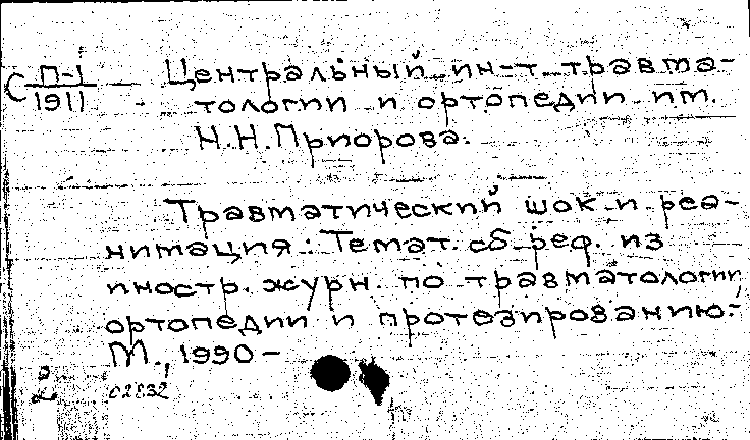 С П-1 / 1911
Центральный ин-т травма-
тологии и ортопедии им.
Н.Н.Приорова.
Травматический шок и реа-
нимация: Темат. сб. реф. из
иностр. журн. по травматологии,
ортопедии и протезированию.-
М., 1990 -
2 02832